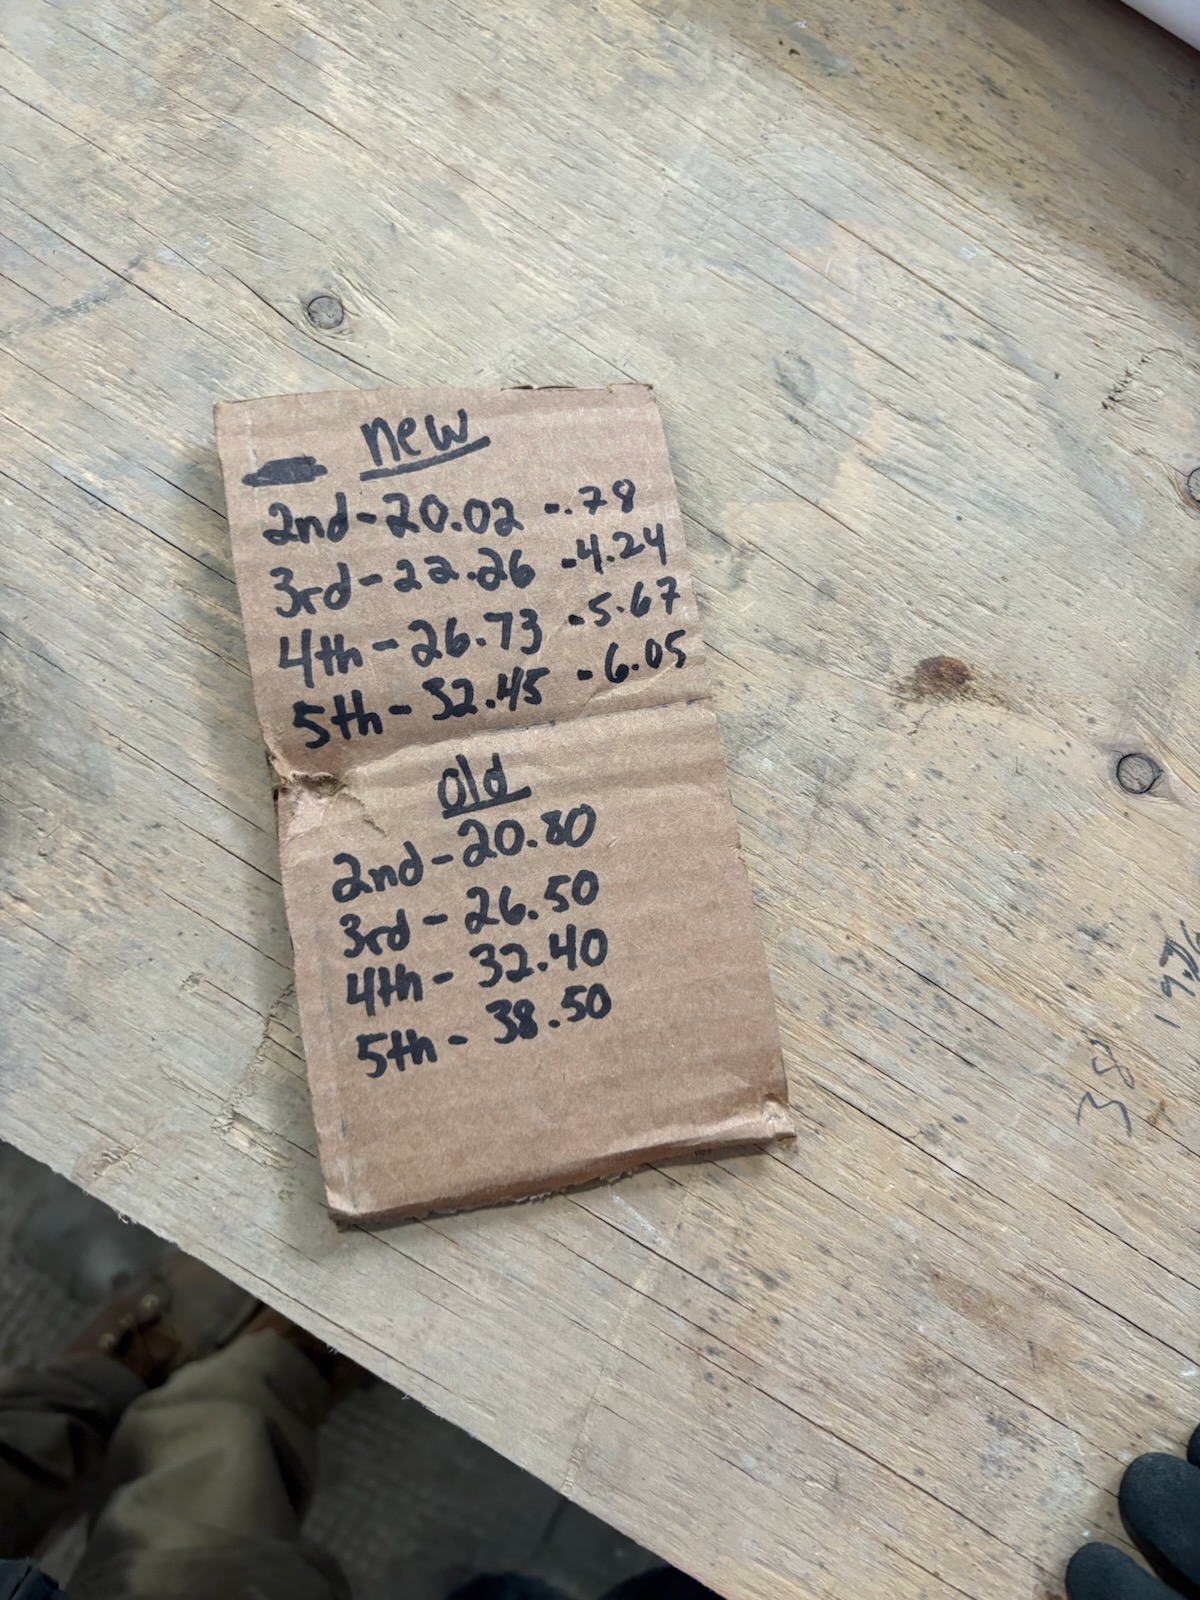 new
2nd - 20.02 -.78
3rd - 22.26 -4.24
4th - 26.73 -5.67
5th - 32.45 -6.05
old
2nd - 20.80
3rd - 26.50
4th - 32.40
5th - 38.50
38